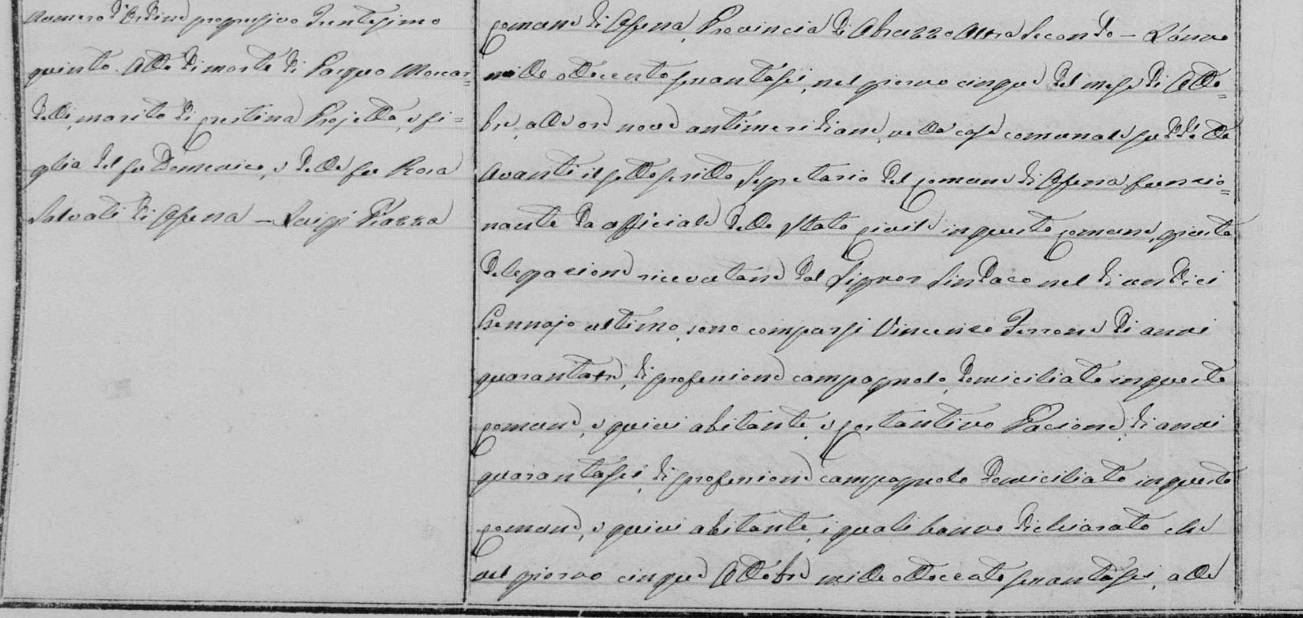 Numero d'Ordine progressivo trentesimo
quinto. Atto di morte di Pasquo Moscar=
delli, marito di Cristina Projetta, e fi=
glia del fu Domenico, e della fu Rosa
Salvati di Ofena – Luigi Piazza
Comune di Ofena, Provincia di Abruzzo Ultra Secondo – L'anno
mille ottocento sessantasei, nel giorno cinque del mese di Otto=
bre, alle ore nove antimeridiane, nella casa comunale suddetta
Avanti il sottoscritto Segretario del Comune di Ofena funzio=
nante da officiale dello Stato Civile in questo Comune, giusta
delegazione ricevutane dal Signor Sindaco nel di undici
Gennajo ultimo, sono comparsi Vincenzo Terrone di anni
quarantatre, di professione campagnolo, domiciliato in questo
Comune, e quivi abitante, e Costantino Pacione, di anni
quarantasei, di professione campagnolo domiciliato in questo
Comune, e quivi abitante, i quali hanno dichiarato che
nel giorno cinque Ottobre mille ottocento sessantasei, alle